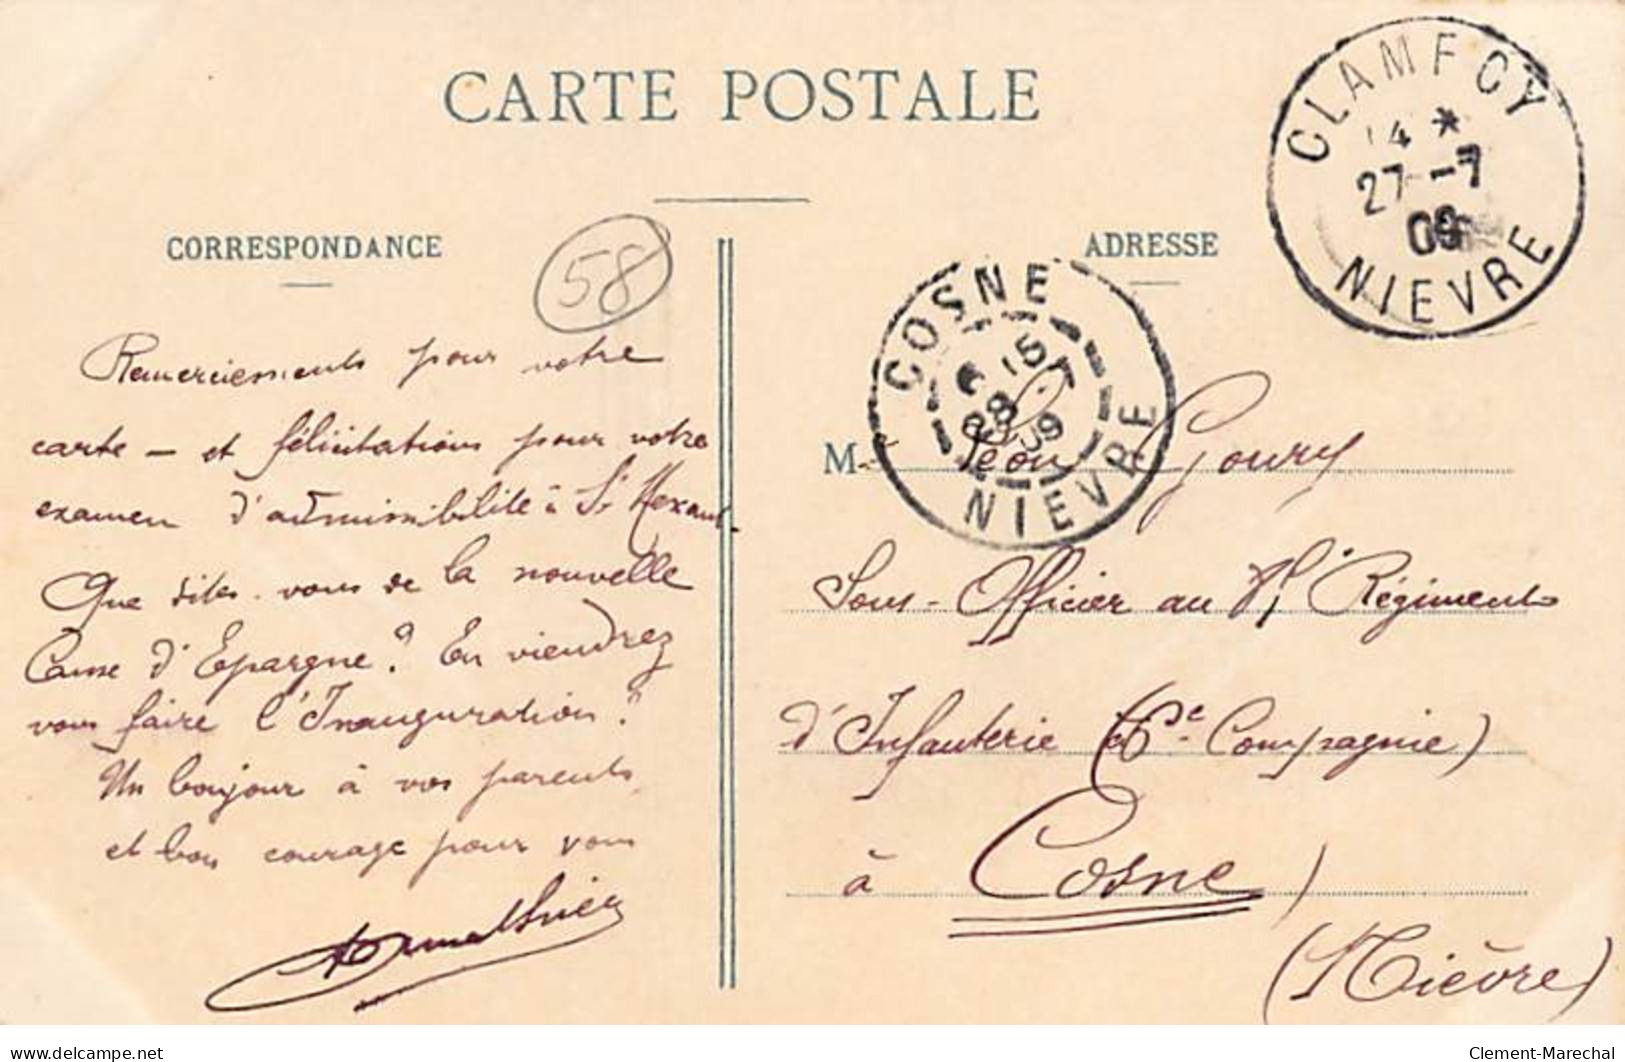 CARTE POSTALE
CLAMECY
14 *
27 - 7
09
NIEVRE
CORRESPONDANCE
58
ADRESSE
COSNE
15
28 - 7
09
NIEVRE
Remerciements pour votre
carte — et félicitations pour votre
examen d'admissibilité à St Mexant.
Que dites-vous de la nouvelle
Caisse d'Epargne? En viendrez
vous faire l'Inauguration?
Un bonjour à vos parents,
et bon courage pour vous
M. Léon Goury
Sous-Officier au Régiment
d'Infanterie (6e Compagnie)
à Cosne
(Nièvre)
delcampe.net
Clement-Marechal